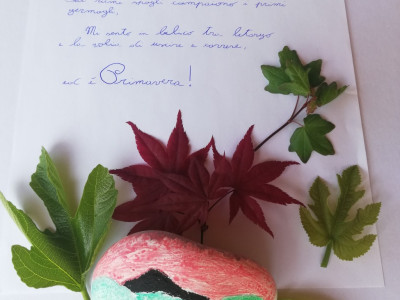 rami spogli compaiono i primi
germogli.
Mi sento in bilico tra letargo
e la voglia di uscire e correre,
ed è Primavera!